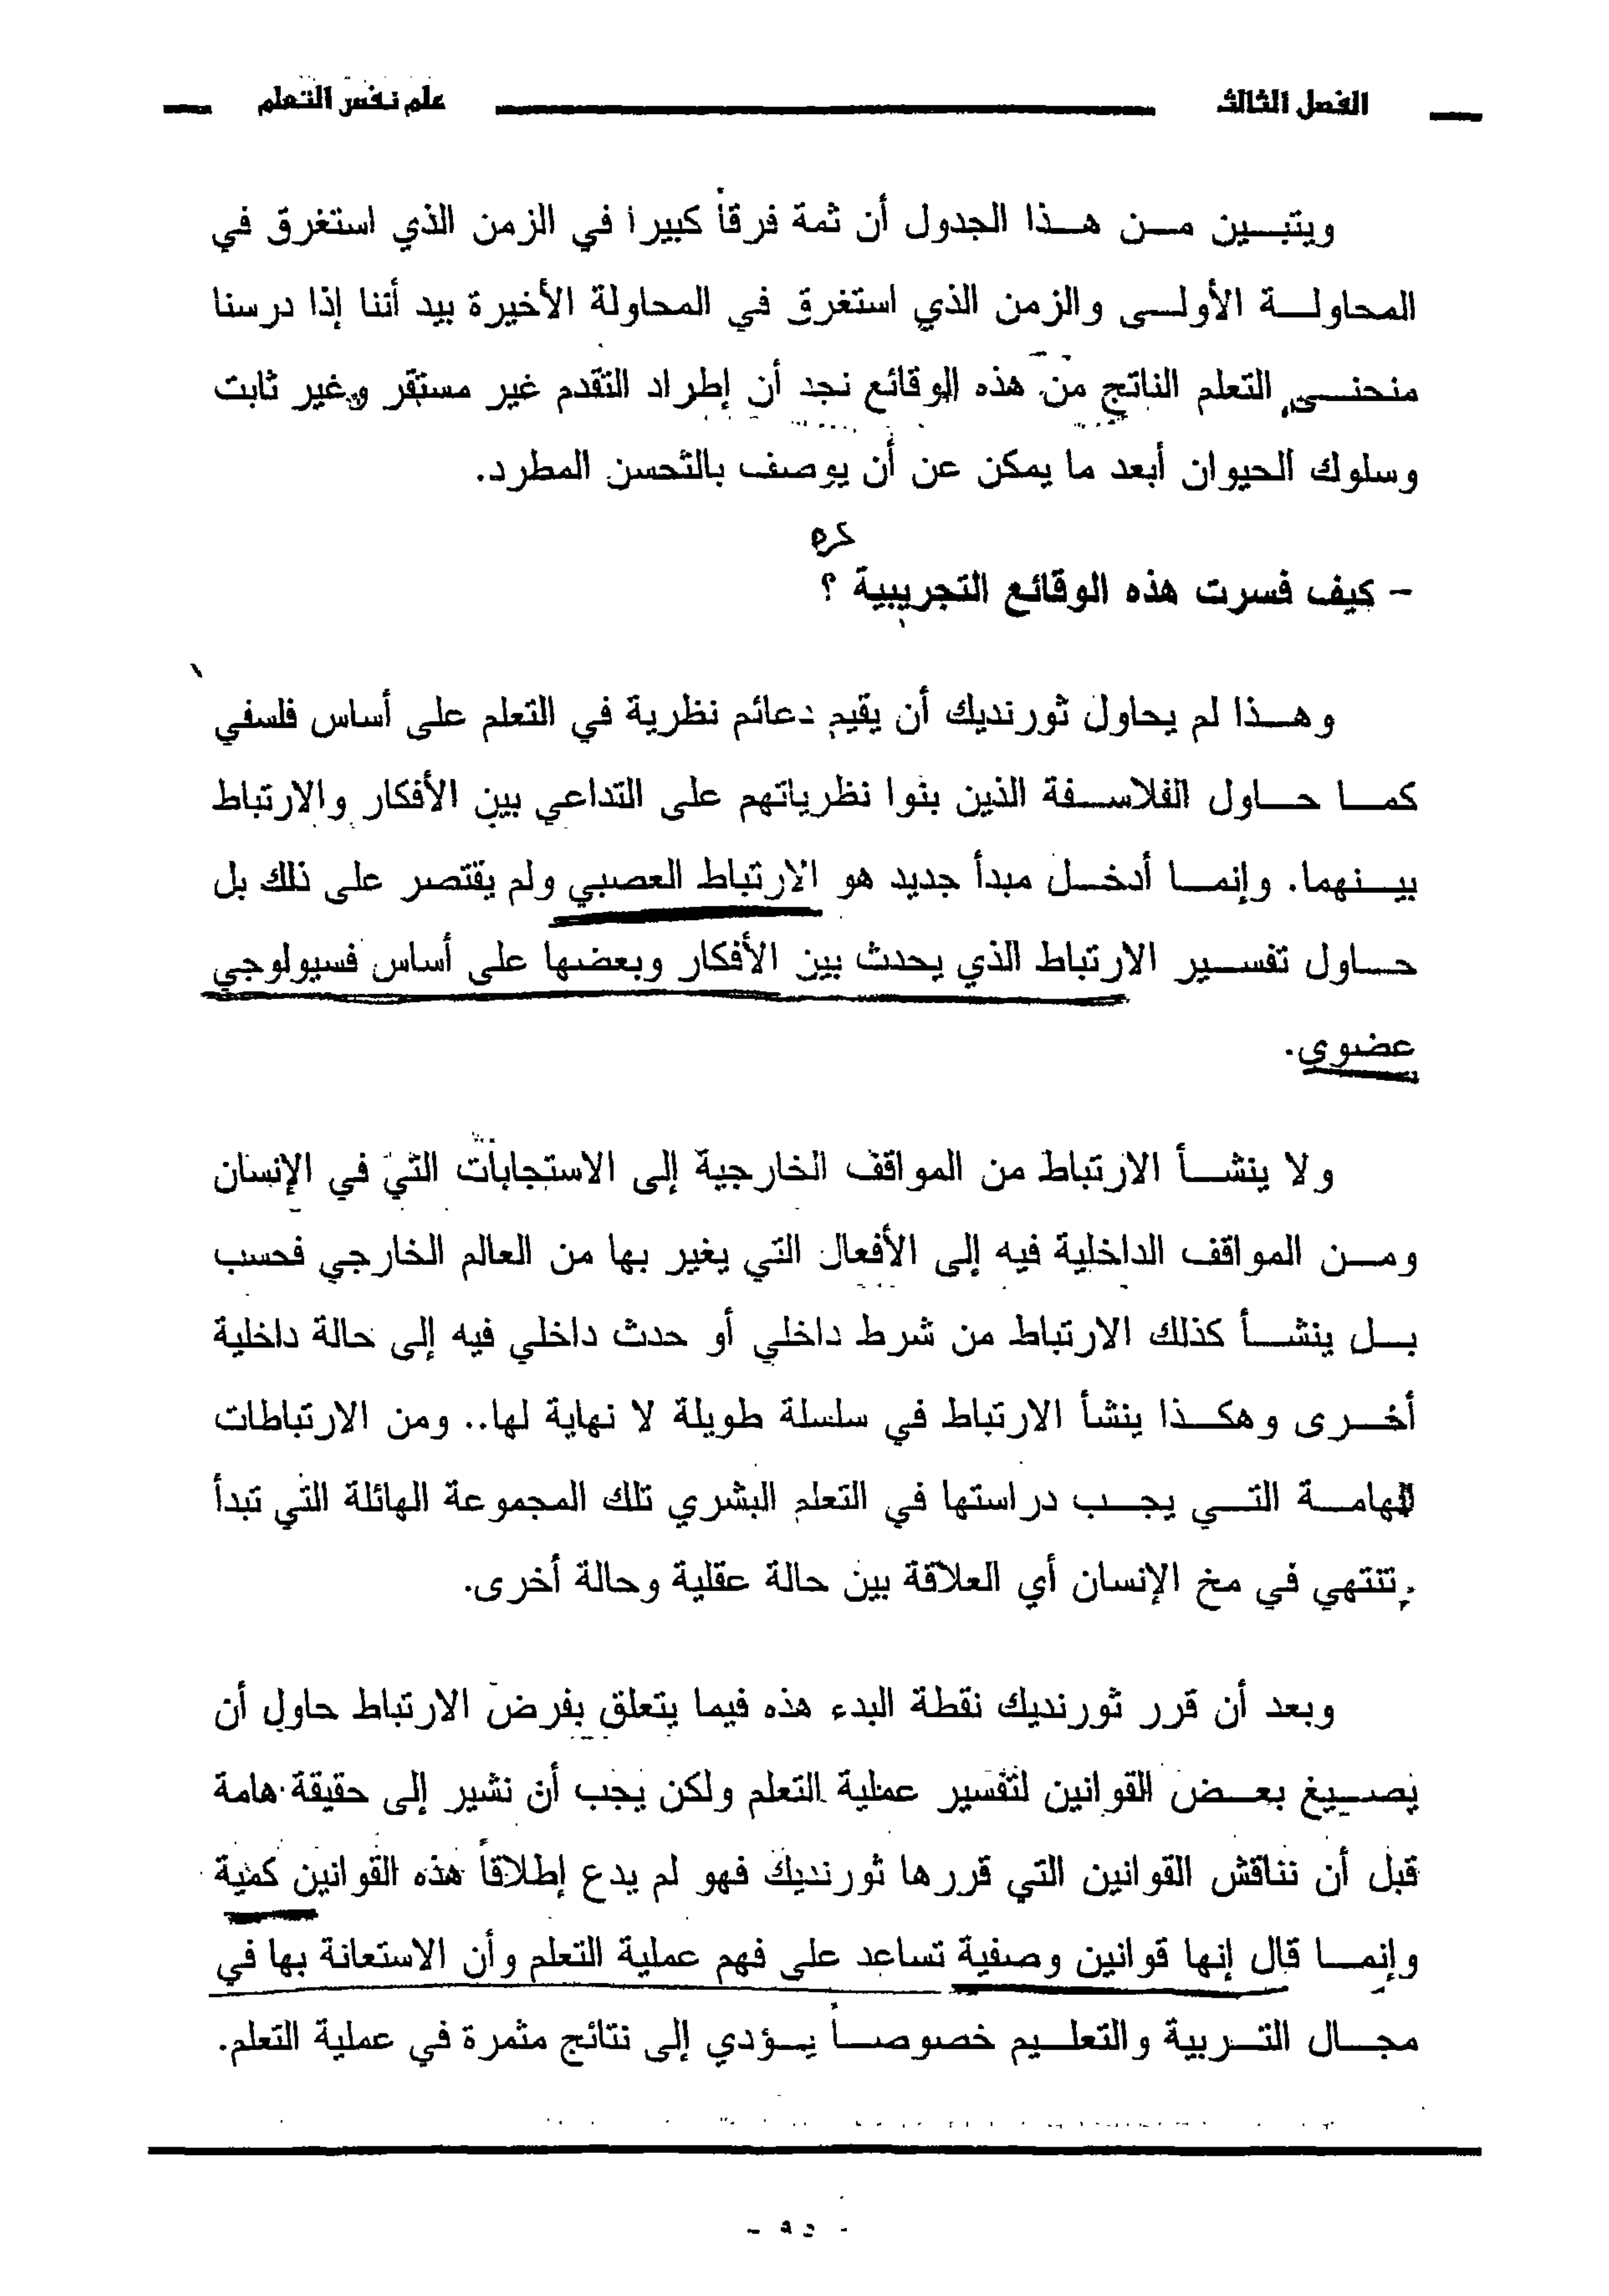 الفصل الثالث علم نفس التعلم
ويتبين من هذا الجدول أن ثمة فرقاً كبيرا في الزمن الذي استغرق في
المحاولة الأولى والزمن الذي استغرق في المحاولة الأخيرة بيد أننا إذا درسنا
منحنى التعلم الناتج من هذه الوقائع نجد أن إطراد التقدم غير مستقر وغير ثابت
وسلوك الحيوان أبعد ما يمكن عن أن يوصف بالتحسن المطرد.
- كيف فسرت هذه الوقائع التجريبية ؟
وهذا لم يحاول ثورنديك أن يقيم دعائم نظرية في التعلم على أساس فلسفي
كما حاول الفلاسفة الذين بنوا نظرياتهم على التداعي بين الأفكار والارتباط
بينهما. وإنما أدخل مبدأ جديد هو الارتباط العصبي ولم يقتصر على ذلك بل
حاول تفسير الارتباط الذي يحدث بين الأفكار وبعضها على أساس فسيولوجي
عضوي.
ولا ينشأ الارتباط من المواقف الخارجية إلى الاستجابات التي في الإنسان
ومن المواقف الداخلية فيه إلى الأفعال التي يغير بها من العالم الخارجي فحسب
بل ينشأ كذلك الارتباط من شرط داخلي أو حدث داخلي فيه إلى حالة داخلية
أخرى وهكذا ينشأ الارتباط في سلسلة طويلة لا نهاية لها.. ومن الارتباطات
الهامة التي يجب دراستها في التعلم البشري تلك المجموعة الهائلة التي تبدأ
تنتهي في مخ الإنسان أي العلاقة بين حالة عقلية وحالة أخرى.
وبعد أن قرر ثورنديك نقطة البدء هذه فيما يتعلق بفرض الارتباط حاول أن
يصيغ بعض القوانين لتفسير عملية التعلم ولكن يجب أن نشير إلى حقيقة هامة
قبل أن نناقش القوانين التي قررها ثورنديك فهو لم يدع إطلاقاً هذه القوانين كمية
وإنما قال إنها قوانين وصفية تساعد على فهم عملية التعلم وأن الاستعانة بها في
مجال التربية والتعليم خصوصاً يؤدي إلى نتائج مثمرة في عملية التعلم.